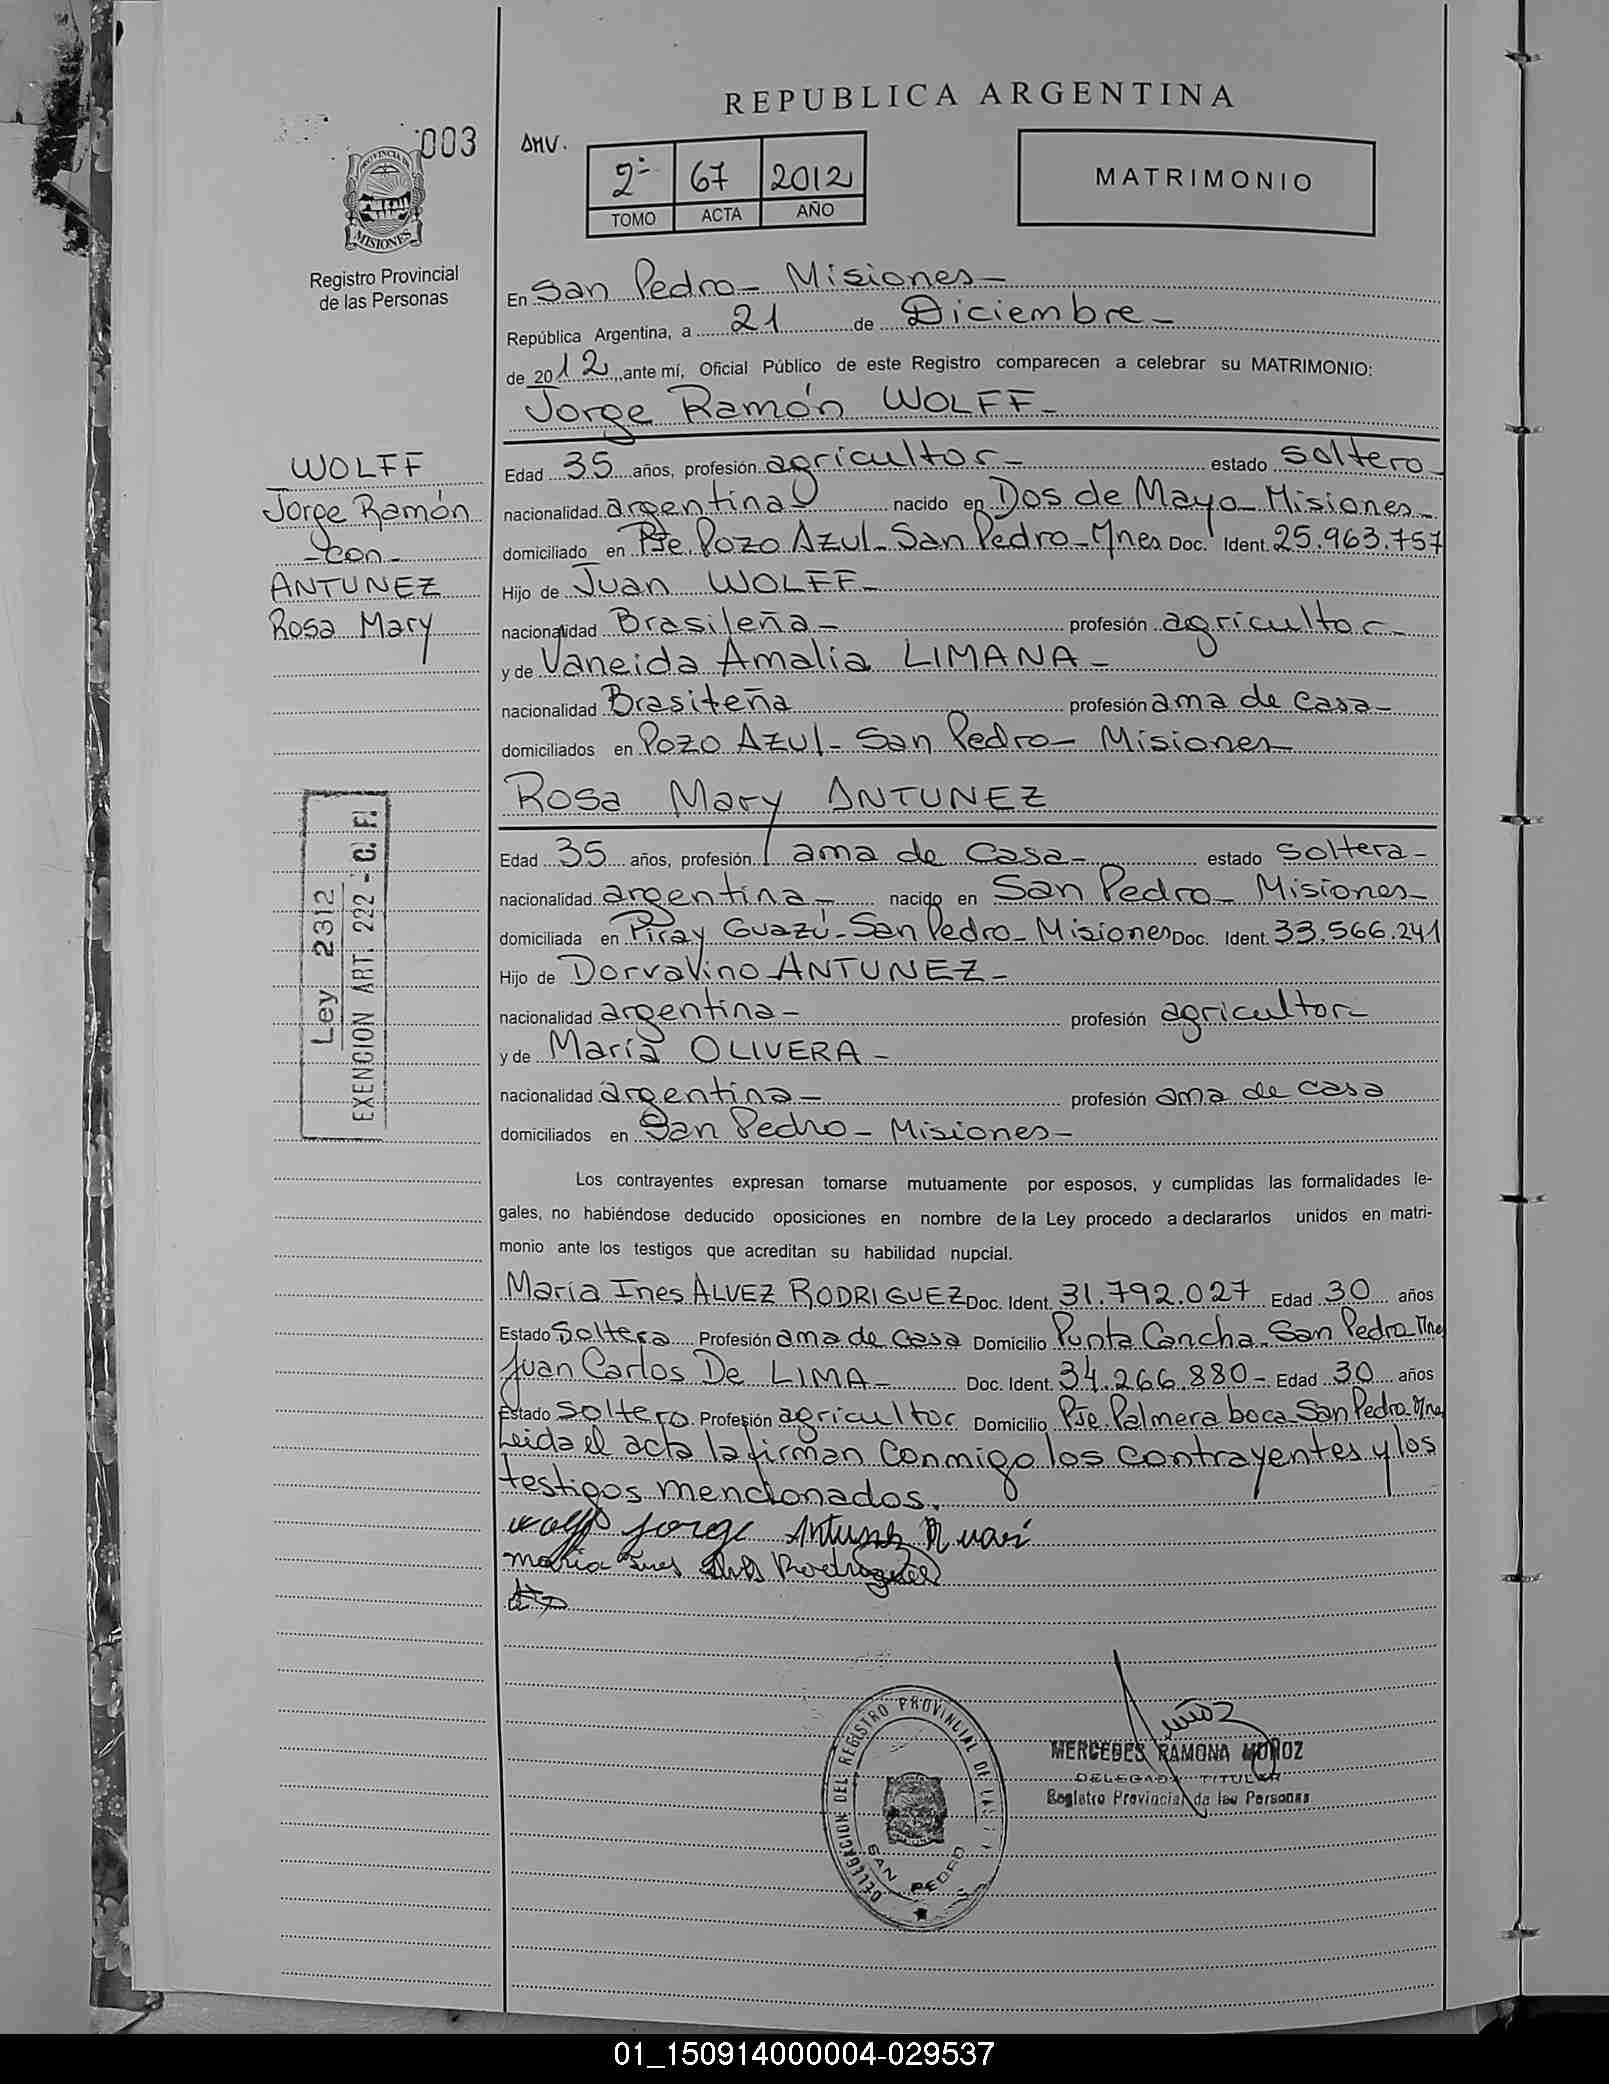 REPUBLICA ARGENTINA
003
AHV.
2º 67 2012
TOMO ACTA AÑO
MATRIMONIO
PROVINCIA DE
MISIONES
Registro Provincial
de las Personas
En San Pedro - Misiones -
República Argentina, a 21 de Diciembre -
de 2012, ante mí, Oficial Público de este Registro comparecen a celebrar su MATRIMONIO:
Jorge Ramón WOLFF -
WOLFF
Jorge Ramón
- con -
ANTUNEZ
Rosa Mary
Edad 35 años, profesión agricultor - estado soltero -
nacionalidad argentina - nacido en Dos de Mayo - Misiones -
domiciliado en Pje. Pozo Azul - San Pedro - Mnes Doc. Ident. 25.963.757
Hijo de Juan WOLFF -
nacionalidad Brasileña - profesión agricultor -
y de Vaneida Amalia LIMANA -
nacionalidad Brasileña profesión ama de casa -
domiciliados en Pozo Azul - San Pedro - Misiones
Rosa Mary ANTUNEZ
Ley 2312
EXENCION ART. 222 - C. F.
Edad 35 años, profesión ama de casa - estado soltera -
nacionalidad argentina - nacido en San Pedro - Misiones -
domiciliada en Piray Guazú - San Pedro - Misiones Doc. Ident. 33.566.241
Hijo de Dorvalino ANTUNEZ -
nacionalidad argentina - profesión agricultor -
y de María OLIVERA -
nacionalidad argentina - profesión ama de casa
domiciliados en San Pedro - Misiones -
Los contrayentes expresan tomarse mutuamente por esposos, y cumplidas las formalidades le-
gales, no habiéndose deducido oposiciones en nombre de la Ley procedo a declararlos unidos en matri-
monio ante los testigos que acreditan su habilidad nupcial.
María Ines ALVEZ RODRIGUEZ Doc. Ident. 31.792.027 Edad 30 años
Estado Soltera Profesión ama de casa Domicilio Punta Cancha - San Pedro - Mnes
Juan Carlos De LIMA - Doc. Ident. 34.266.880 - Edad 30 años
Estado Soltero Profesión agricultor Domicilio Pje. Palmera boca San Pedro - Mnes
Leida el acta la firman conmigo los contrayentes y los
testigos mencionados.
Wolff Jorge Antunez
Maria Ines Alves Rodriguez
DELEGACION DEL REGISTRO PROVINCIAL DE LAS
SAN PEDRO
Muñoz
MERCEDES RAMONA MUÑOZ
DELEGADA TITULAR
Registro Provincial de las Personas
01_150914000004-029537